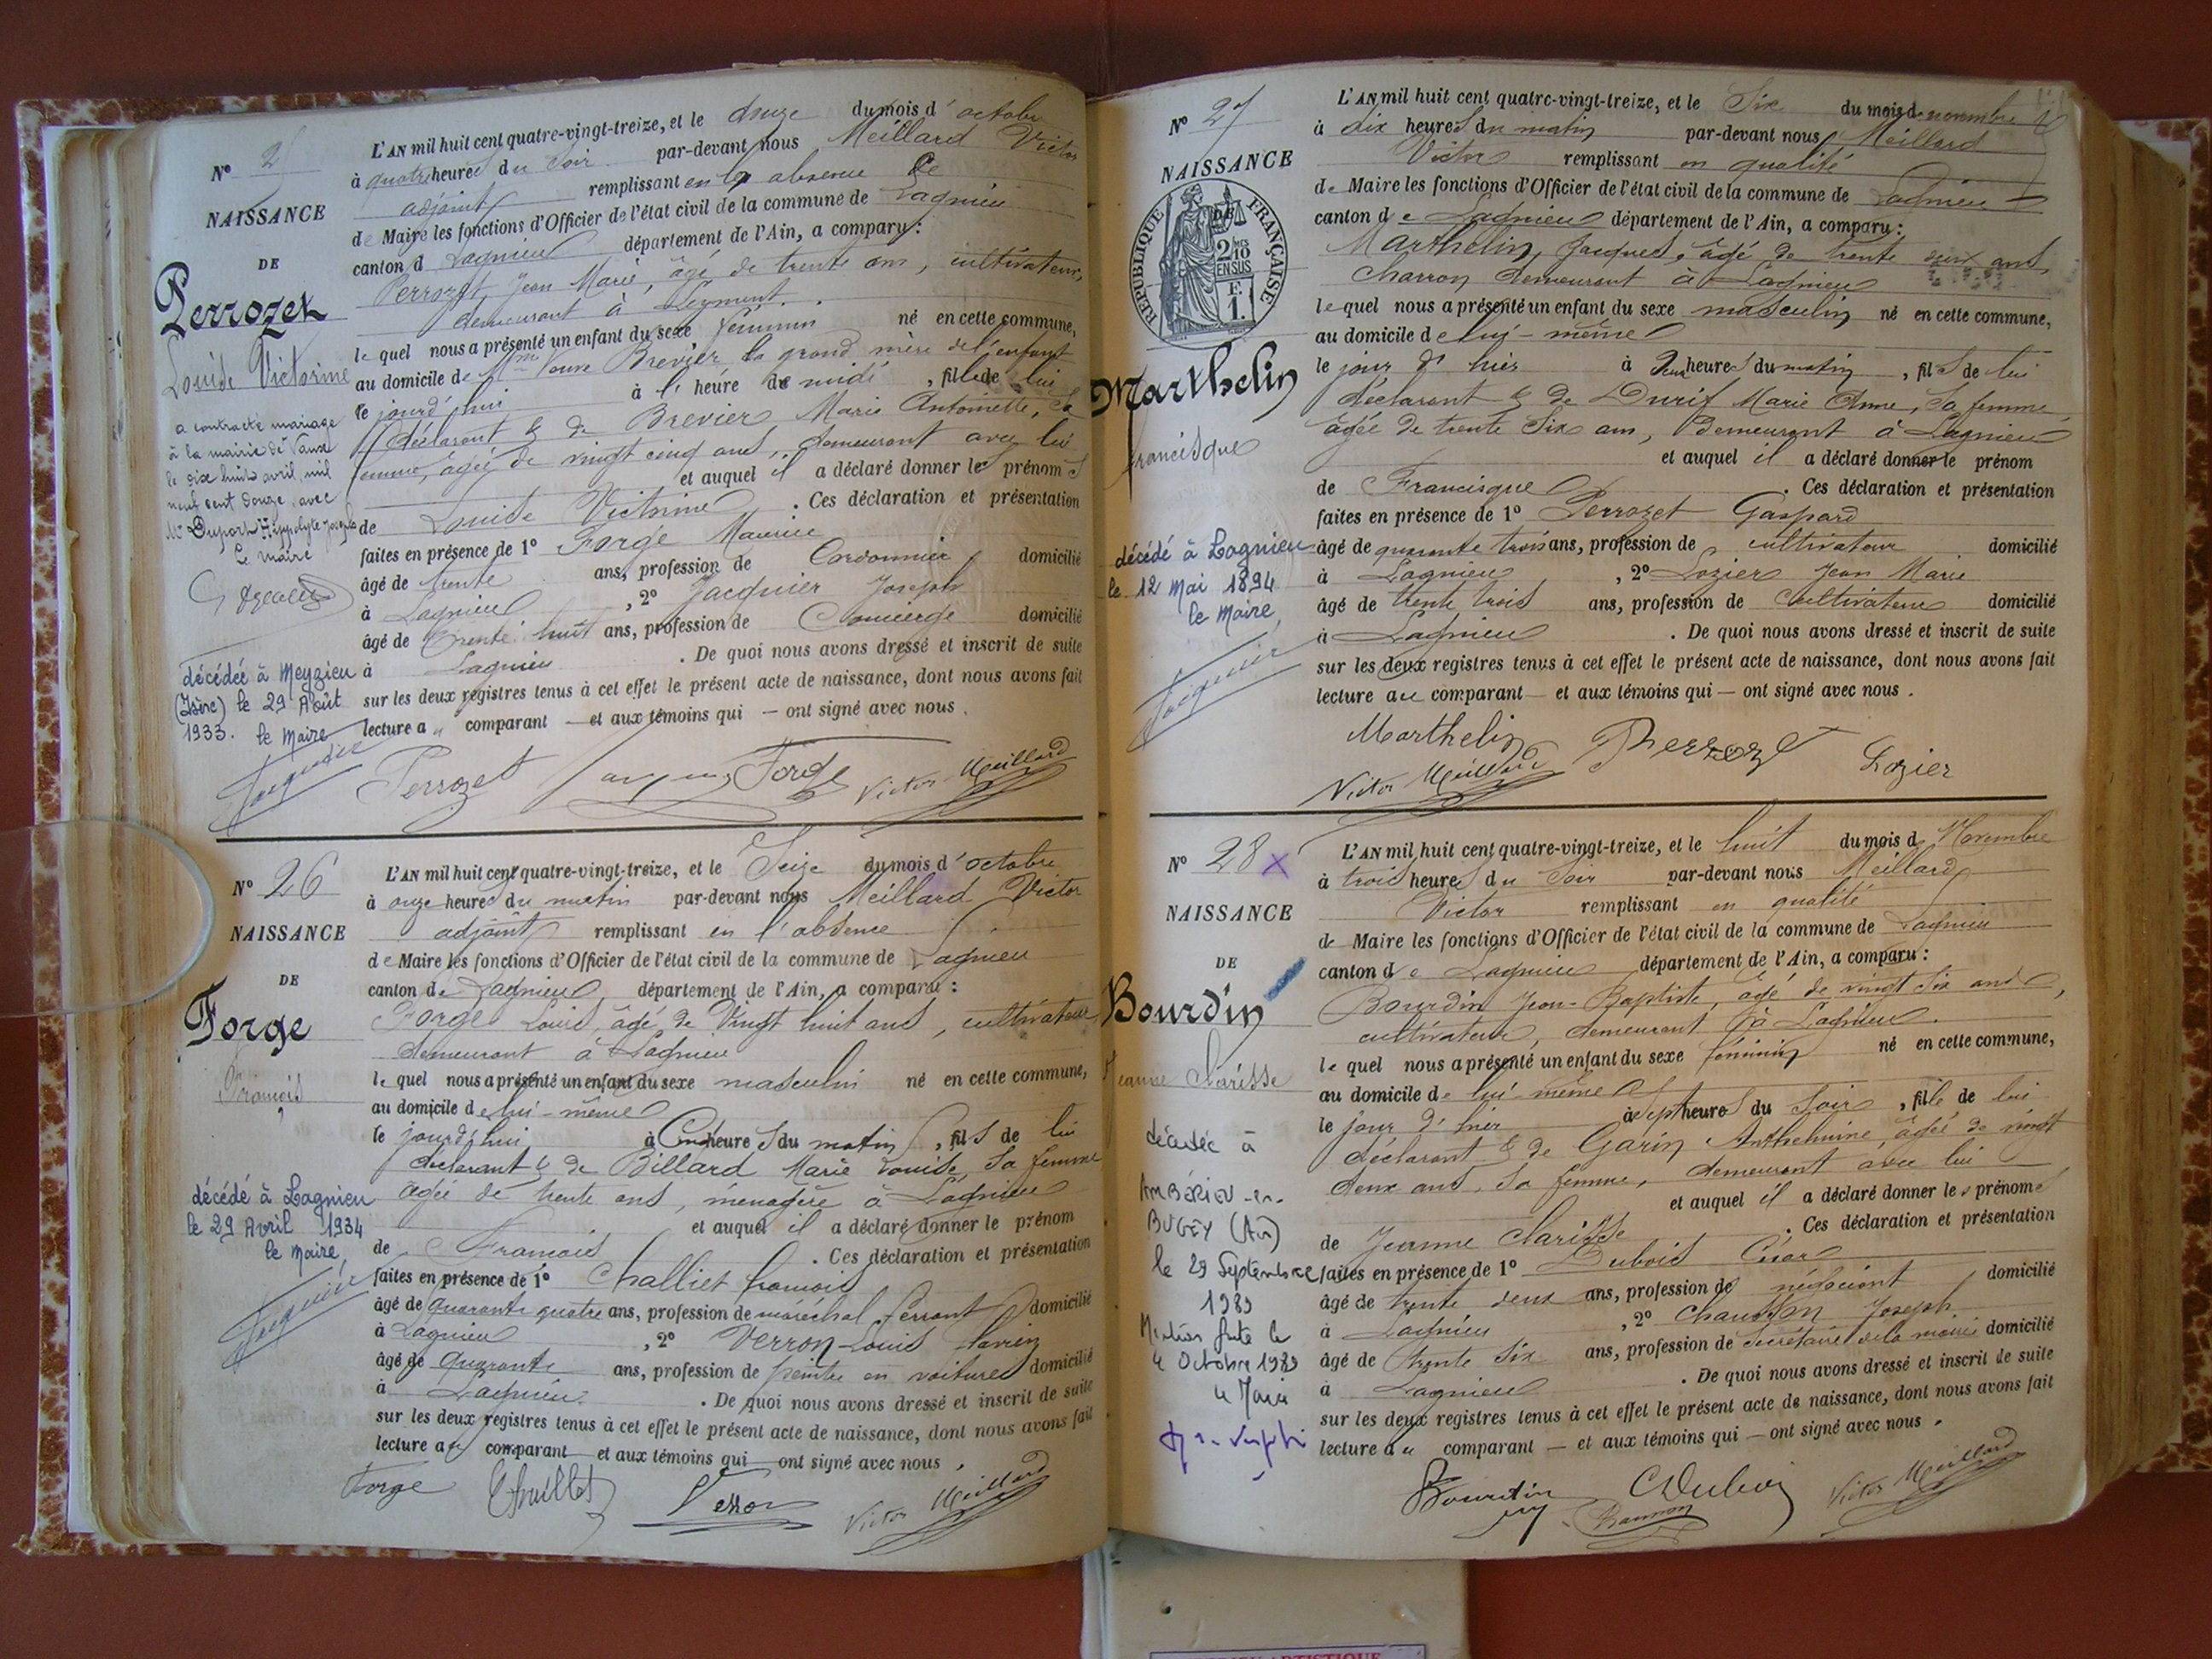 N° 2
NAISSANCE
DE
Perrozet
Louise Victorine
a contracté mariage
à la mairie de Vaux
le dix huit avril mil
neuf cent douze, avec
Mr Duport Hippolyte Joseph
Le Maire
décédée à Meyzieu
(Isère) le 29 Août
1933. le Maire
L'AN mil huit cent quatre-vingt-treize, et le douze du mois d'octobre
à quatre heures du soir par-devant nous Meillard Victor
adjoint remplissant en l'absence de
de Maire les fonctions d'Officier de l'état civil de la commune de Lagnieu
canton d Lagnieu département de l'Ain, a comparu :
Perrozet Jean Marie, âgé de trente ans, cultivateur,
demeurant à Leyment.
lequel nous a présenté un enfant du sexe féminin né en cette commune,
au domicile de Mme Veuve Brevier la grand mère de l'enfant
le jourd'hui à l'heure de midi, fille de lui
déclarant & de Brevier Marie Antoinette, sa
femme, âgée de vingt cinq ans, demeurant avec lui
et auquel il a déclaré donner les prénoms
de Louise Victorine. Ces déclaration et présentation
faites en présence de 1° Forge Maurice
âgé de trente ans, profession de Cordonnier domicilié
à Lagnieu, 2° Jacquier Joseph
âgé de trente huit ans, profession de Concierge domicilié
à Lagnieu. De quoi nous avons dressé et inscrit de suite
sur les deux registres tenus à cet effet le présent acte de naissance, dont nous avons fait
lecture au comparant — et aux témoins qui — ont signé avec nous.
Perrozet Forge Victor Meillard
N° 26
NAISSANCE
DE
Forge
François
décédé à Lagnieu
le 29 Avril 1934
le Maire,
L'AN mil huit cent quatre-vingt-treize, et le Seize du mois d'octobre
à onze heures du matin par-devant nous Meillard Victor
adjoint remplissant en l'absence
de Maire les fonctions d'Officier de l'état civil de la commune de Lagnieu
canton de Lagnieu département de l'Ain, a comparu :
Forge Louis, âgé de Vingt huit ans, cultivateur
demeurant à Lagnieu
lequel nous a présenté un enfant du sexe masculin né en cette commune,
au domicile de lui-même
le jourd'hui à heures du matin, fils de lui
déclarant & de Billard Marie Louise, sa femme
âgée de trente ans, ménagère à Lagnieu
et auquel il a déclaré donner le prénom
de François. Ces déclaration et présentation
faites en présence de 1° Challiet François
âgé de quarante quatre ans, profession de maréchal ferrant domicilié
à Lagnieu, 2° Verron Louis
âgé de quarante ans, profession de peintre en voitures domicilié
à Lagnieu. De quoi nous avons dressé et inscrit de suite
sur les deux registres tenus à cet effet le présent acte de naissance, dont nous avons fait
lecture au comparant — et aux témoins qui — ont signé avec nous.
Forge Victor Meillard
N° 27
NAISSANCE
RÉPUBLIQUE FRANÇAISE
2/10 EN SUS
F. 1.
Marthelin
Francisque
décédé à Lagnieu
le 12 Mai 1894
le Maire,
L'AN mil huit cent quatre-vingt-treize, et le Six du mois de novembre
à dix heures du matin par-devant nous Meillard
Victor remplissant en qualité
de Maire les fonctions d'Officier de l'état civil de la commune de Lagnieu
canton de Lagnieu département de l'Ain, a comparu :
Marthelin, Jacques, âgé de trente ans,
charron demeurant à Lagnieu
lequel nous a présenté un enfant du sexe masculin né en cette commune,
au domicile de lui-même
le jour d'hier à heures du matin, fils de lui
déclarant & de Durif Marie Anne, sa femme
âgée de trente six ans, demeurant à Lagnieu
et auquel il a déclaré donner le prénom
de Francisque. Ces déclaration et présentation
faites en présence de 1° Perrozet Gaspard
âgé de quarante trois ans, profession de cultivateur domicilié
à Lagnieu, 2° Lozier Jean Marie
âgé de trente trois ans, profession de cultivateur domicilié
à Lagnieu. De quoi nous avons dressé et inscrit de suite
sur les deux registres tenus à cet effet le présent acte de naissance, dont nous avons fait
lecture au comparant — et aux témoins qui — ont signé avec nous.
Marthelin Perrozet Lozier
Victor Meillard
N° 28 X
NAISSANCE
DE
Bourdin
Jeanne Clarisse
décédée à
AMBÉRIEU-en-
BUGEY (Ain)
le 29 Septembre
1989
Mention faite le
4 Octobre 1989
Le Maire
L'AN mil huit cent quatre-vingt-treize, et le huit du mois d Novembre
à trois heures du soir par-devant nous Meillard
Victor remplissant en qualité
de Maire les fonctions d'Officier de l'état civil de la commune de Lagnieu
canton de Lagnieu département de l'Ain, a comparu :
Bourdin Jean-Baptiste, âgé de vingt six ans,
cultivateur, demeurant à Lagnieu.
lequel nous a présenté un enfant du sexe féminin né en cette commune,
au domicile de lui-même
le jour d'hier à sept heures du soir, fille de lui
déclarant & de Garin Anthelmine, âgée de vingt
deux ans, sa femme, demeurant avec lui
et auquel il a déclaré donner les prénoms
de Jeanne Clarisse. Ces déclaration et présentation
faites en présence de 1° Dubois César
âgé de trente deux ans, profession de négociant domicilié
à Lagnieu, 2° Chausson Joseph
âgé de trente six ans, profession de Secrétaire de la mairie domicilié
à Lagnieu. De quoi nous avons dressé et inscrit de suite
sur les deux registres tenus à cet effet le présent acte de naissance, dont nous avons fait
lecture au comparant — et aux témoins qui — ont signé avec nous.
Bourdin CDubois Victor Meillard